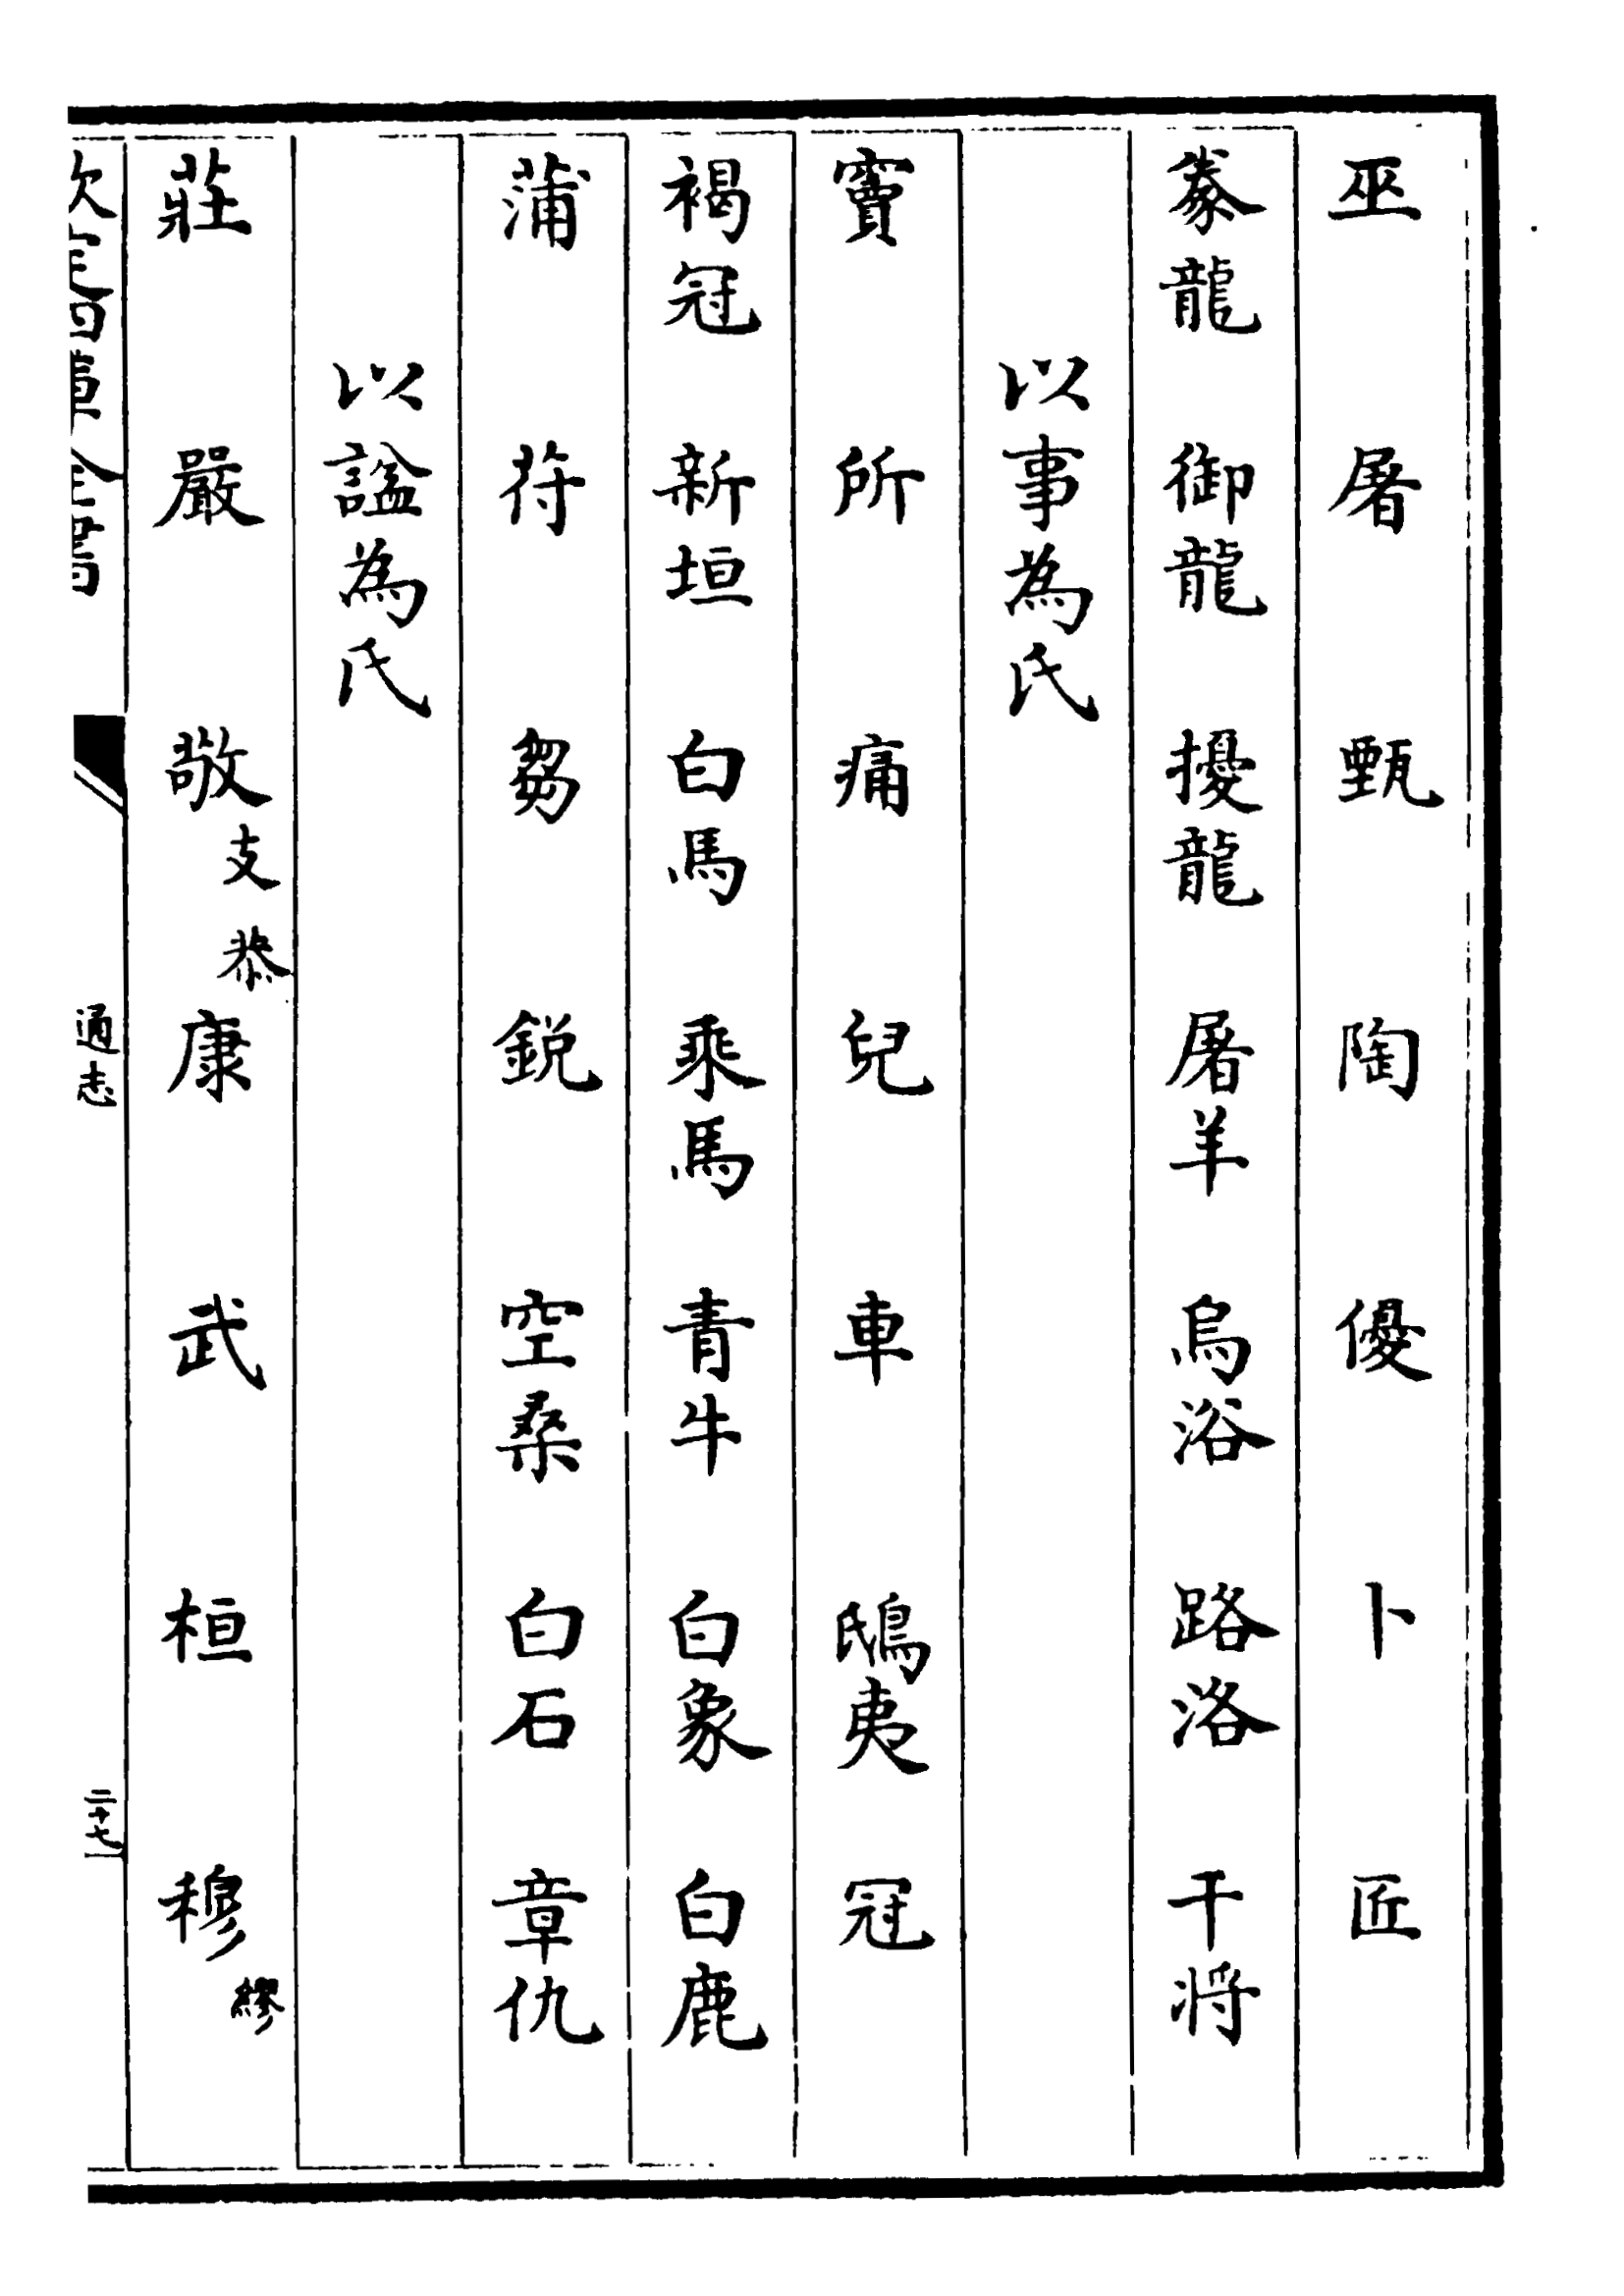 巫 屠 甄 陶 優 卜 匠
豢龍 御龍 擾龍 屠羊 烏浴 路洛 干將
以事為氏
竇 所 痛 兒 車 鴟夷 冠
褐冠 新垣 白馬 乘馬 青牛 白象 白鹿
蒲 苻 芻 鋭 空桑 白石 章仇
以諡為氏
莊 嚴 敬 支 㳟 康 武 桓 穆 繆
欽定四庫全書 通志 二十七